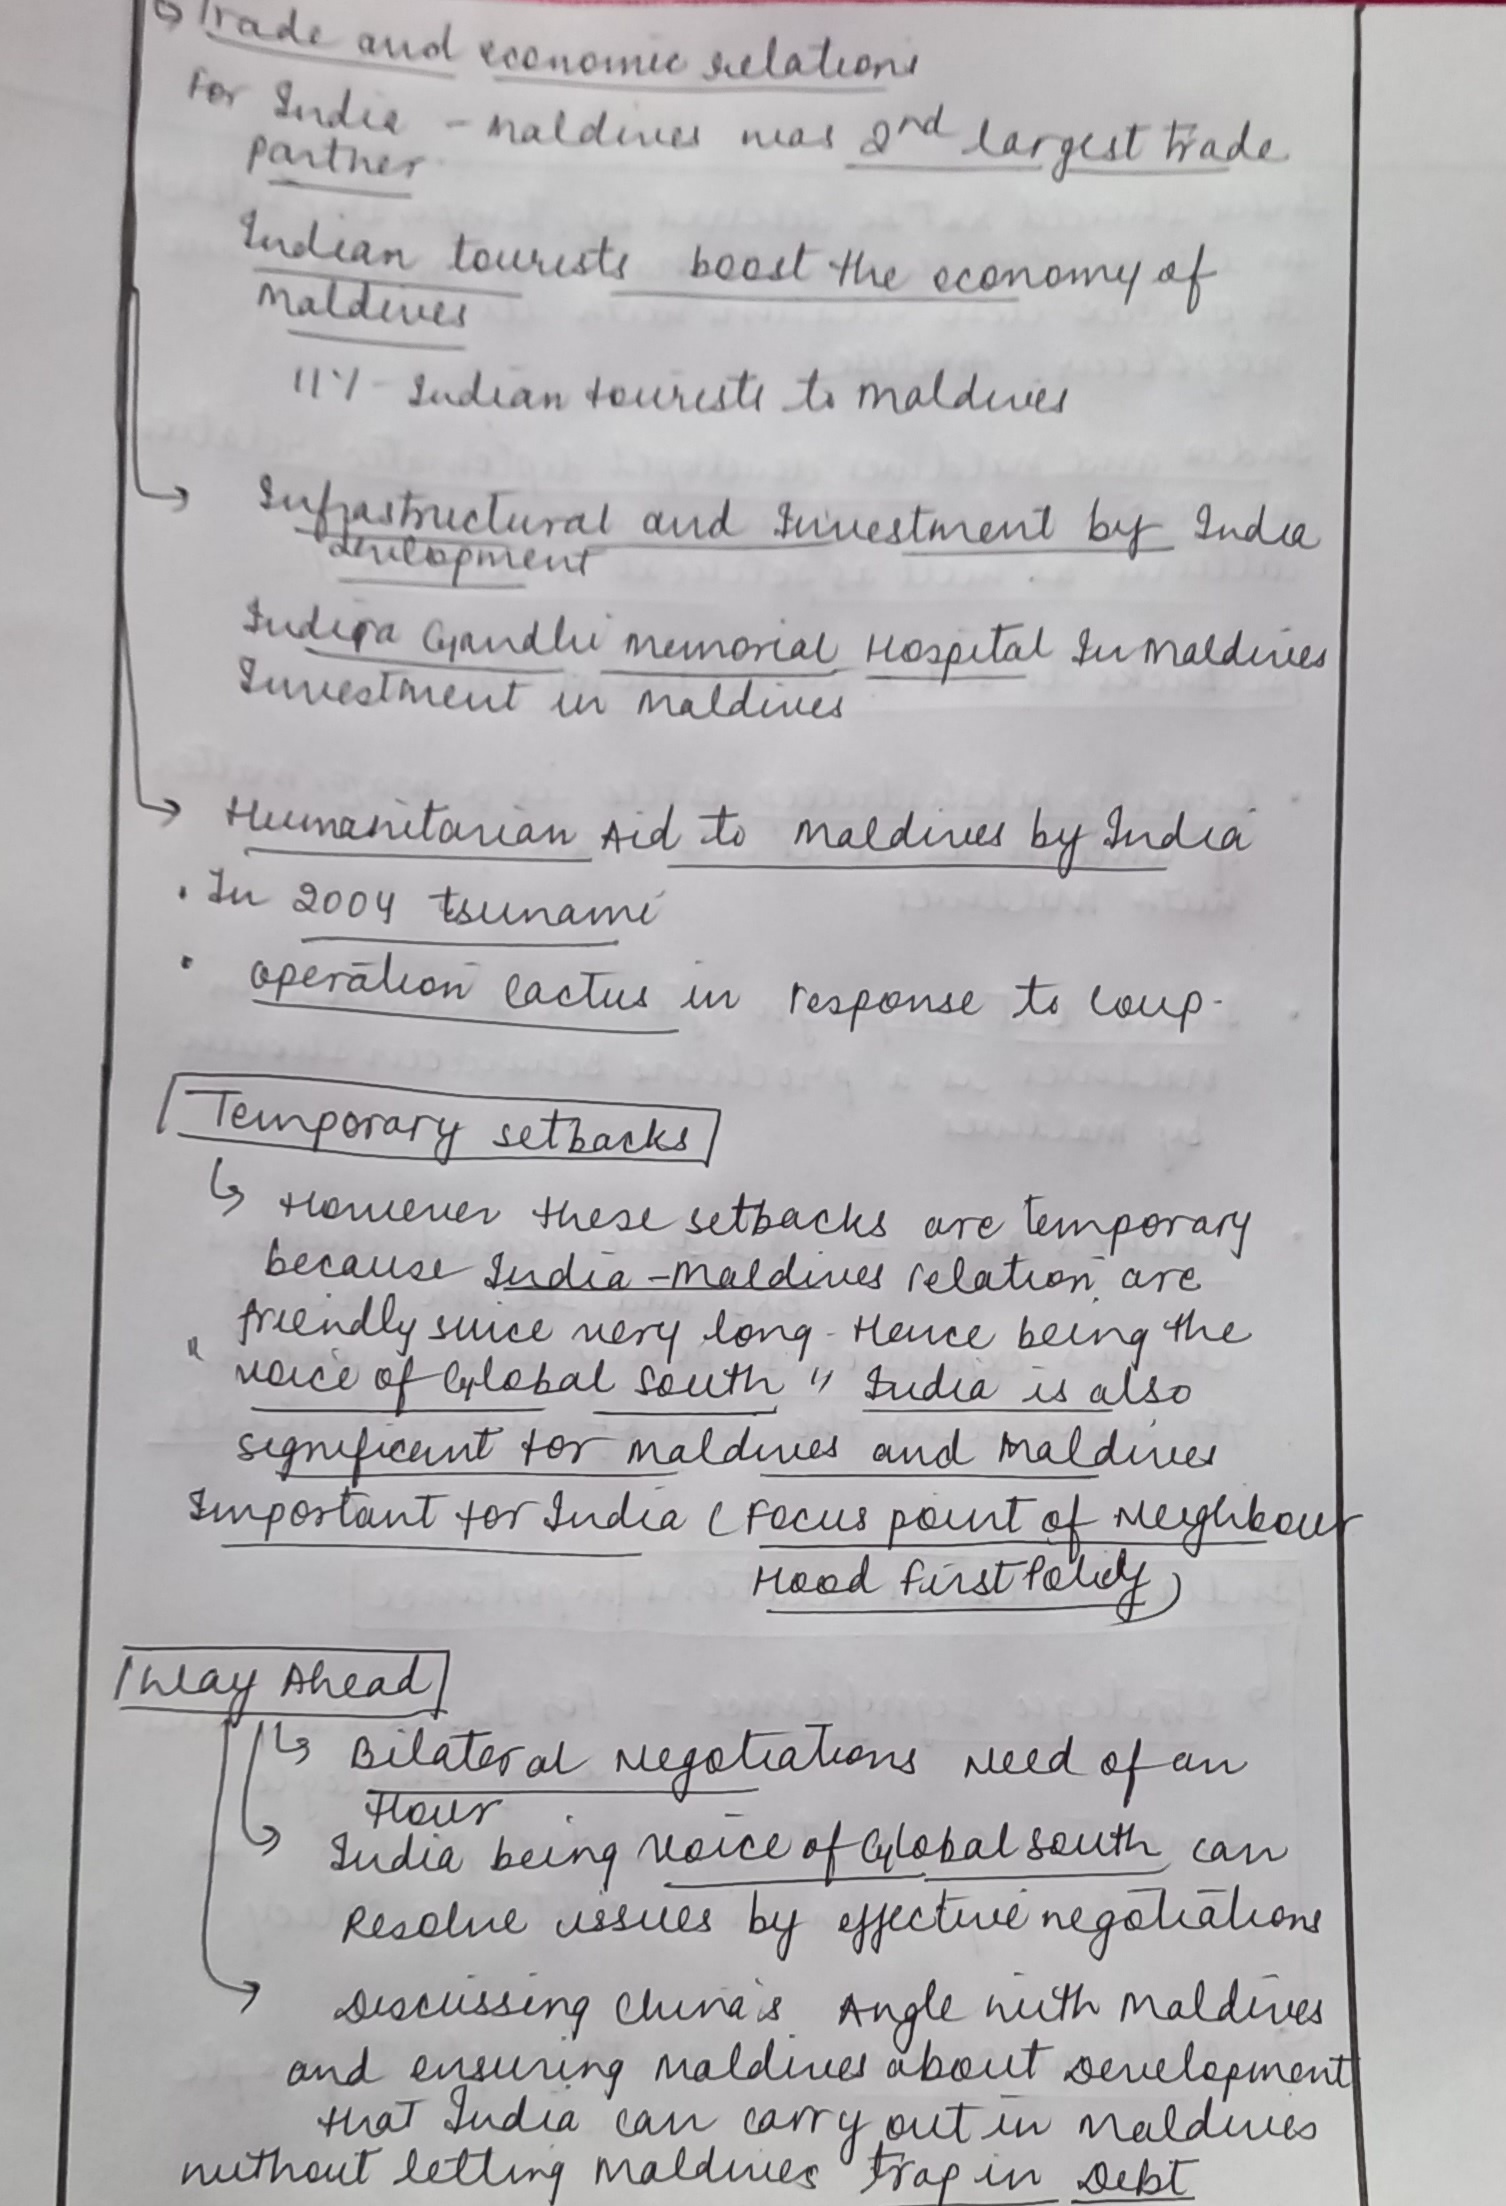 Trade and economic relations
For India - Maldives was 2nd largest trade
partner
Indian tourists boost the economy of
Maldives
11% Indian tourists to Maldives
Infrastructural and Investment by India
development
Indira Gandhi Memorial Hospital In Maldives
Investment in Maldives
Humanitarian Aid to Maldives by India
. In 2004 tsunami
. Operation Cactus in response to Coup.
Temporary setbacks
However these setbacks are temporary
because India-Maldives relation are
friendly since very long. Hence being the
"voice of Global South" India is also
significant for Maldives and Maldives
Important for India (Focus point of Neighbour
Hood First Policy)
Way Ahead
Bilateral Negotiations Need of an
Hour
India being Voice of Global South can
Resolve issues by effective negotiations
Discussing China's Angle with Maldives
and ensuring Maldives about Development
that India can carry out in Maldives
without letting Maldives trap in Debt